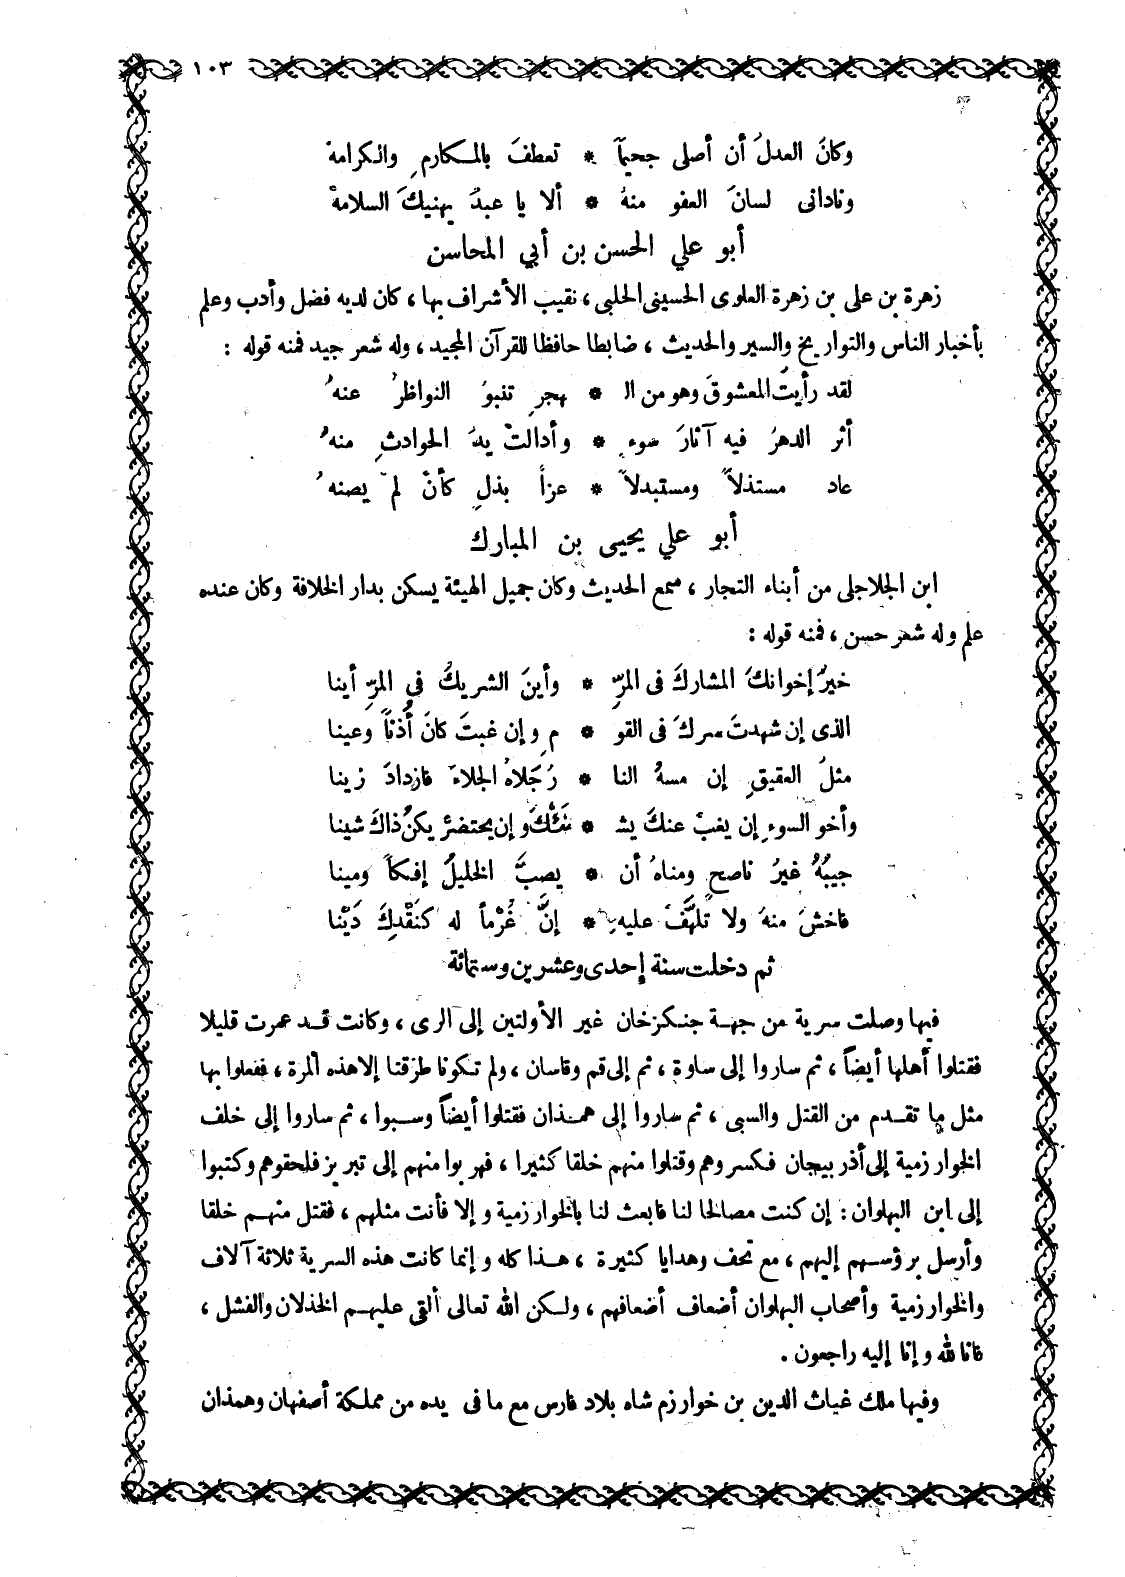 ١٠٣
وكانَ العدلُ أن أصلى جحيمًا * تعطفَ بالمكارمِ والكرامهْ
ونادانى لسانَ العفو منهُ * ألا يا عبدُ يهنيكَ السلامهْ
أبو علي الحسن بن أبي المحاسن
زهرة بن على بن زهرة العلوى الحسينى الحلبى ، نقيب الأشراف بها ، كان لديه فضل وأدب وعلم
بأخبار الناس والتواريخ والسير والحديث ، ضابطا حافظا للقرآن المجيد ، وله شعر جيد فمنه قوله :
لقد رأيتُ المعشوقَ وهو من ال * هجرِ تنبوُ النواظرُ عنهُ
أثر الدهرُ فيه آثارَ سوءٍ * وأدالتْ يدُ الحوادثِ منهُ
عاد مستذلاً ومستبدلاً * عزاً بذلٍ كأنْ لمْ يصنهُ
أبو علي يحيى بن المبارك
ابن الجلاجلى من أبناء التجار ، سمع الحديث وكان جميل الهيئة يسكن بدار الخلافة وكان عنده
علم وله شعر حسن ، فمنه قوله :
خيرُ إخوانكَ المشاركَ فى المرِّ * وأينَ الشريكُ فى المرِّ أينا
الذى إن شهدتَ سركَ فى القو * مِ وإن غبتَ كانَ أُذناً وعينا
مثلُ العقيقِ إن مسهُ النا * رُ جَلاهُ الجلاءَ فازدادَ زينا
وأخو السوءِ إن يغبْ عنكَ يشـ * نئْكَ وإن يحتضرْ يكنْ ذاكَ شينا
جيبُهُ غيرُ ناصحٍ ومناهُ أن * يصبَّ الخليلُ إفكاً ومينا
فاخشَ منهُ ولا تلهَّفْ عليهِ * إنَّ غُرْماً له كنَقْدِكَ دَيْنا
ثم دخلت سنة إحدى وعشرين وستمائة
فيها وصلت سرية من جهة جنكزخان غير الأولتين إلى الرى ، وكانت قد عمرت قليلا
فقتلوا أهلها أيضاً ، ثم ساروا إلى ساوة ، ثم إلى قم وقاسان ، ولم تكونا طرقتا إلا هذه المرة ، ففعلوا بها
مثل ما تقدم من القتل والسبى ، ثم ساروا إلى همذان فقتلوا أيضاً وسبوا ، ثم ساروا إلى خلف
الخوارزمية إلى أذربيجان فكسروهم وقتلوا منهم خلقا كثيرا ، فهربوا منهم إلى تبريز فلحقوهم وكتبوا
إلى ابن البهلوان : إن كنت مصالحا لنا فابعث لنا بالخوارزمية وإلا فأنت مثلهم ، فقتل منهم خلقا
وأرسل برؤسهم إليهم ، مع تحف وهدايا كثيرة ، هذا كله وإنما كانت هذه السرية ثلاثة آلاف
والخوارزمية وأصحاب البهلوان أضعاف أضعافهم ، ولكن الله تعالى ألقى عليهم الخذلان والفشل ،
فانا لله وإنا إليه راجعون .
وفيها ملك غياث الدين بن خوارزم شاه بلاد فارس مع ما فى يده من مملكة أصفهان وهمذان